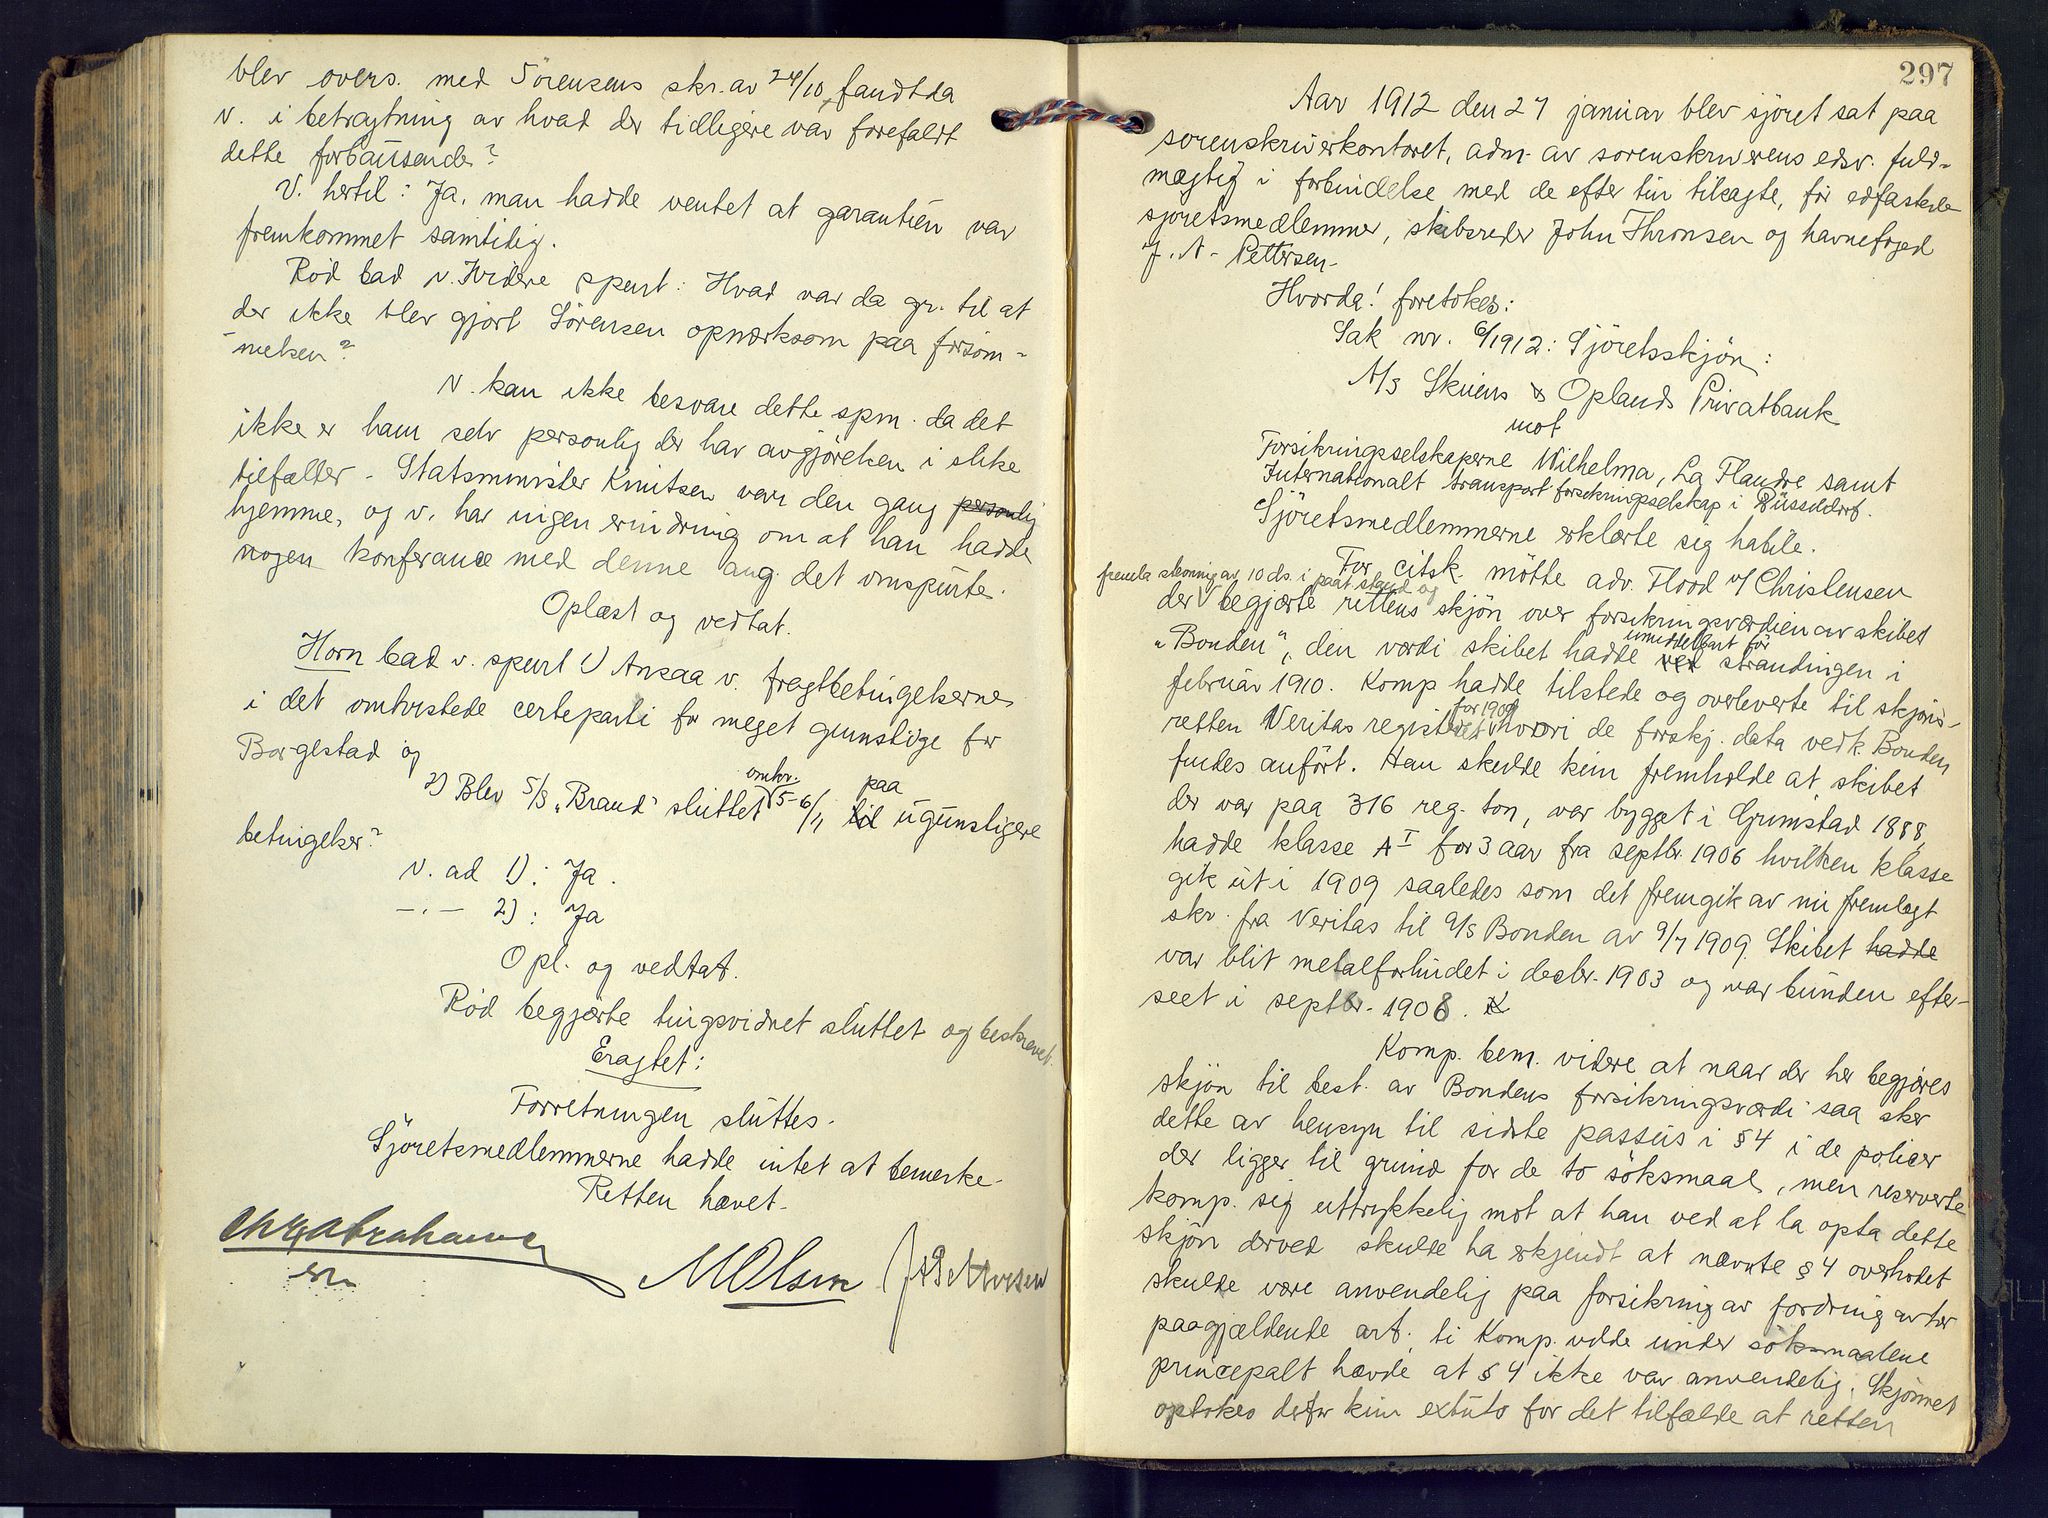 blev overs. med Sörensens skr. av 24/10, fandt da
v. i betragtning av hvad der tidligere var forefaldt
dette forbausende?
V. hertil: Ja, man hadde ventet at garantien var
fremkommet samtidig.
Rød bad v. videre spurt: Hvad var da gr. til at
der ikke blev gjort Sörensen opmerksom paa forsöm-
melsen?
V. kan ikke besvare dette spm. da det
ikke er ham selv personlig der har avgjörelsen i slike
tilfælder. Statsminister Knudsen var den gang personlig
hjemme, og v. har ingen erindring om at han hadde
nogen konferance med denne ang. det omspurte.
Oplæst og vedtat.
Horn bad v. spurt 1) Ansaa v. fragtbetingelserne
i det omtvistede certeparti for meget gunstige for
Borgestad og
2) Blev S/S "Brand" sluttet omkr. 5-6/11 til paa ugunstigere
betingelser?
V. ad 1): Ja.
— " — 2): Ja
Opl. og vedtat.
Rød begjærte tingsvidnet sluttet og beskrevet.
Eragtet:
Forretningen sluttes.
Sjöretsmedlemmerne hadde intet at bemerke.
Retten hævet.
Abrahamsen
M Olsen J A Pettersen
297
Aar 1912 den 27 januar blev sjöret sat paa
sorenskriverkontoret, adm. av sorenskriverens edsv. fuld-
mægtig i forbindelse med de efter tur tilsagte, för edfæstede
sjöretsmedlemmer, skibsreder John Thronsen og havnefoged
J. A. Pettersen.
Hvorda! foretokes:
Sak nr. 6/1912: Sjöretsskjön:
A/S Skiens & Oplands Privatbank
mot
Forsikringsselskaperne Wilhelma, La Flandre samt
Internationalt transportforsikringsselskap i Düsseldorf.
Sjöretsmedlemmerne erklærte sig habile.
For citsk. mötte adv. Flood v/ Christensen
fremla stevning av 10 ds. i paat. stand og
der begjærte rettens skjön over forsikringsværdien av skibet
"Bonden", den værdi skibet hadde ved umiddelbart för strandingen i
februar 1910. Komp hadde tilstede og overleverte til skjöns-
retten Veritas register for 1909 hvori de forskj. data vedk. Bonden
findes anfört. Han skulde kun fremholde at skibet
der var paa 316 reg. ton, var bygget i Grimstad 1888,
hadde klasse A I for 3 aar fra septbr. 1906 hvilken klasse
gik ut i 1909 saaledes som det fremgik av nu fremlagt
skr. fra Veritas til A/S Bonden av 9/7 1909. Skibet hadde
var blit metalforhudet i decbr. 1903 og var bunden efter-
seet i septbr. 1908. K
Komp. bem. videre at naar der her begjæres
skjön til best. av Bondens forsikringsværdi saa sker
dette av hensyn til sidste passus i § 4 i de policer
der ligger til grund for de to söksmaal, men reserverte
komp. sig uttrykkelig mot at han ved at la opta dette
skjön derved skulde ha erkjendt at nævnte § 4 overhodet
skulde være anvendelig paa forsikring av fordring av her
paagjældende art; ti Komp. vilde under söksmaalene
principalt hævde at § 4 ikke var anvendelig. Skjönnet
optokes derfor kun extuto for det tilfælde at retten